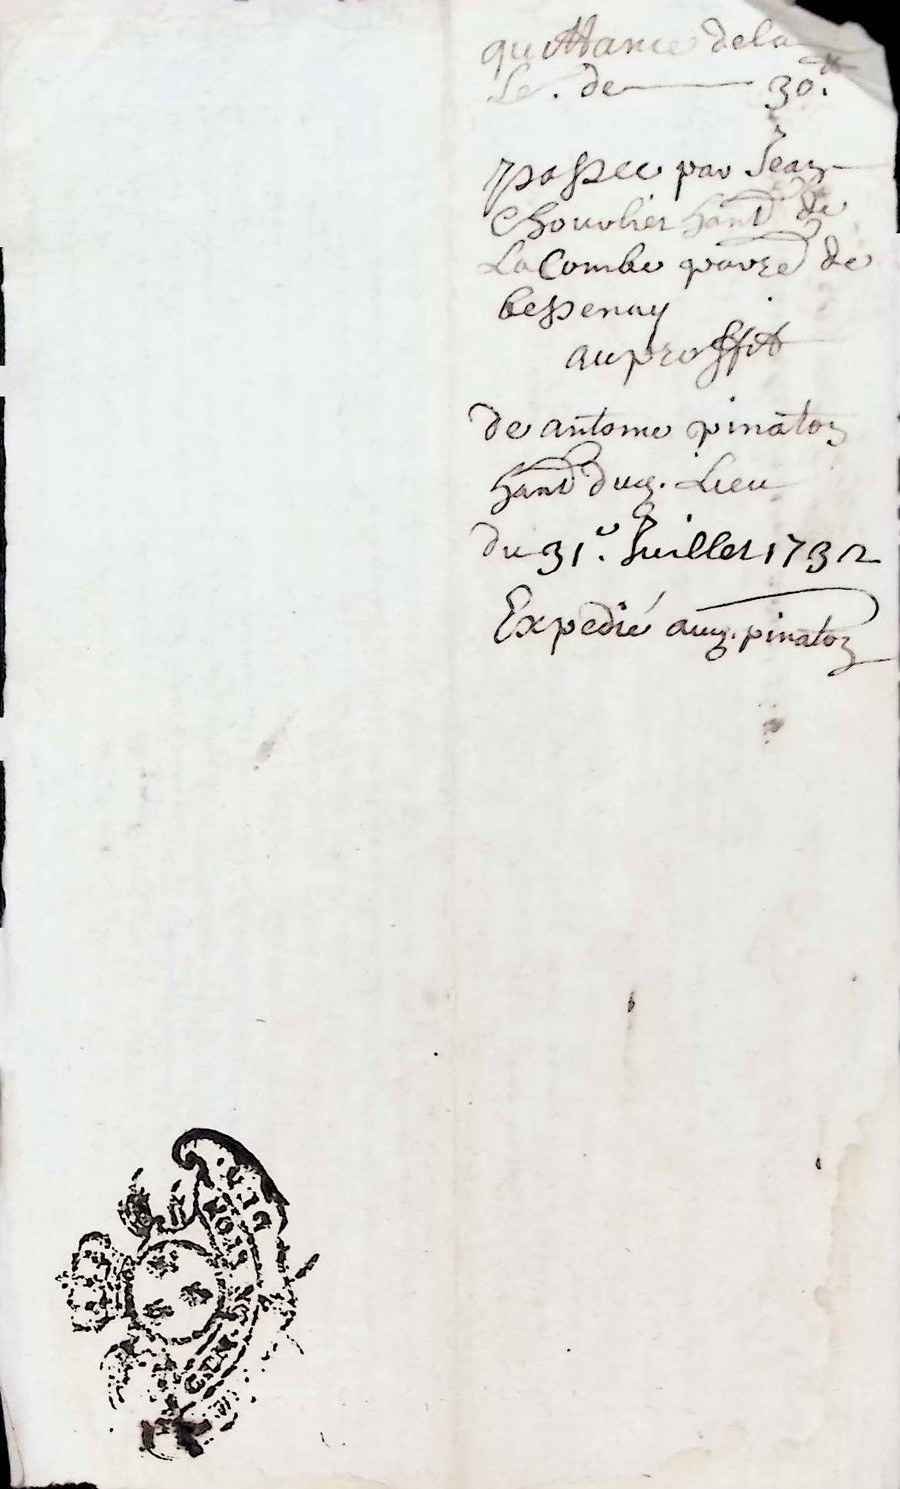 quittance dela
Le . de 30.tt
passee par Jean
Chouvlier hant de
La Combe parre de
bessenay
au proffit
de antoine pinaton
hant dud. Lieu
du 31e. Juillet 1732
Expedié aud. pinaton